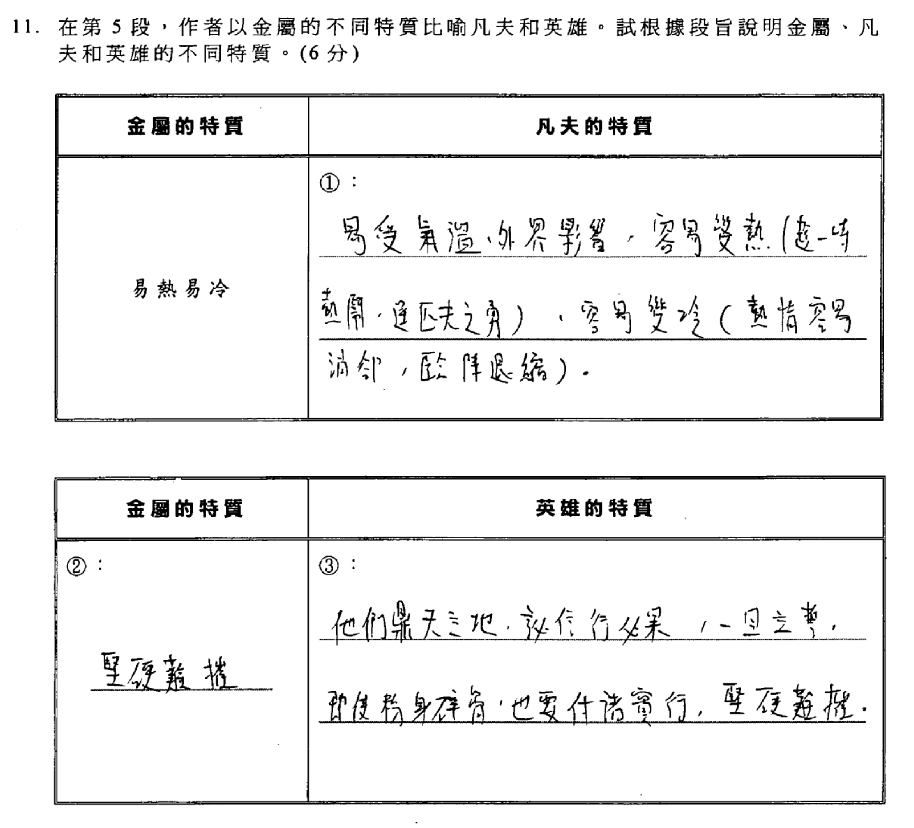 11. 在第 5 段，作者以金屬的不同特質比喻凡夫和英雄。試根據段旨說明金屬、凡
夫和英雄的不同特質。(6 分)
金屬的特質
凡夫的特質
易熱易冷
①：
易受氣溫、外界影響，容易變熱(趁一時
熱鬧，逞匹夫之勇)、容易變冷(熱情容易
消卻，臨陣退縮)。
金屬的特質
英雄的特質
②：
堅硬難摧
③：
他們鼎天立地，言必信行必果，一旦立誓，
即使粉身碎骨，也要付諸實行，堅硬難摧。